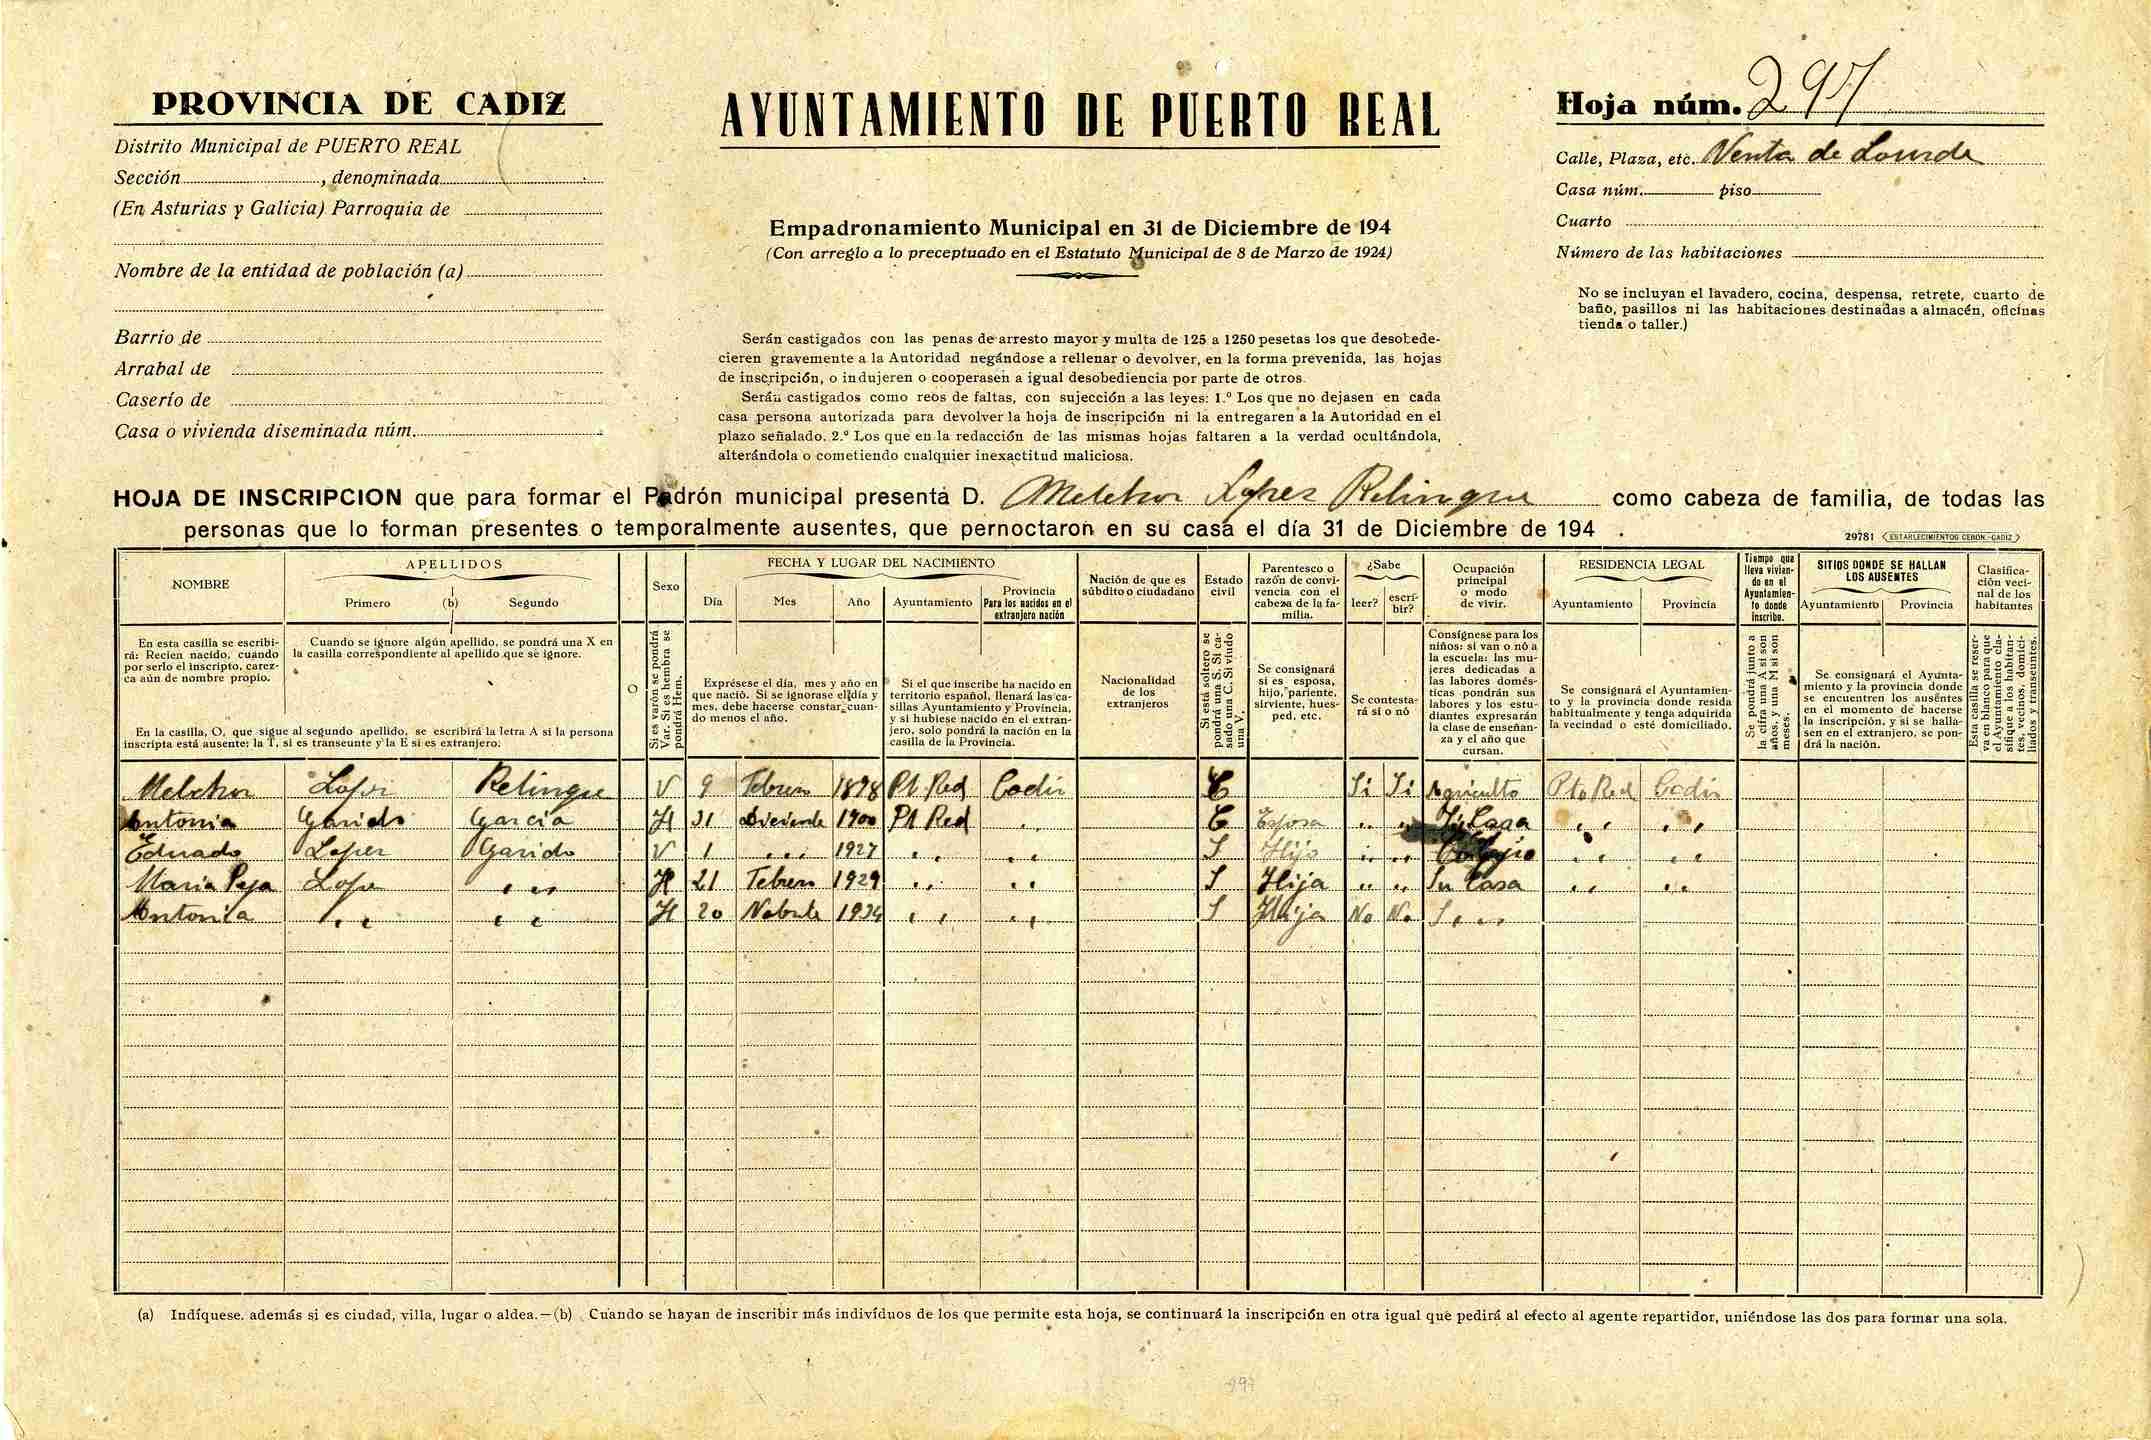 PROVINCIA DE CADIZ
Distrito Municipal de PUERTO REAL
Sección , denominada
(En Asturias y Galicia) Parroquia de
Nombre de la entidad de población (a)
Barrio de
Arrabal de
Caserío de
Casa o vivienda diseminada núm.
AYUNTAMIENTO DE PUERTO REAL
Empadronamiento Municipal en 31 de Diciembre de 194
(Con arreglo a lo preceptuado en el Estatuto Municipal de 8 de Marzo de 1924)
Serán castigados con las penas de arresto mayor y multa de 125 a 1250 pesetas los que desobede-
cieren gravemente a la Autoridad negándose a rellenar o devolver, en la forma prevenida, las hojas
de inscripción, o indujeren o cooperasen a igual desobediencia por parte de otros.
Serán castigados como reos de faltas, con sujección a las leyes: 1.º Los que no dejasen en cada
casa persona autorizada para devolver la hoja de inscripción ni la entregaren a la Autoridad en el
plazo señalado. 2.º Los que en la redacción de las mismas hojas faltaren a la verdad ocultándola,
alterándola o cometiendo cualquier inexactitud maliciosa.
Hoja núm. 297
Calle, Plaza, etc. Venta de Lourde
Casa núm. piso
Cuarto
Número de las habitaciones
No se incluyan el lavadero, cocina, despensa, retrete, cuarto de
baño, pasillos ni las habitaciones destinadas a almacén, oficinas
tienda o taller.)
HOJA DE INSCRIPCION que para formar el Padrón municipal presenta D. Melchor Lopez Relingue como cabeza de familia, de todas las
personas que lo forman presentes o temporalmente ausentes, que pernoctaron en su casa el día 31 de Diciembre de 194 .
29781 ESTABLECIMIENTOS CERON.-CADIZ
NOMBRE
APELLIDOS
Primero (b) Segundo
O
Sexo
FECHA Y LUGAR DEL NACIMIENTO
Día Mes Año Ayuntamiento
Provincia
Para los nacidos en el
extranjero nación
Nación de que es
súbdito o ciudadano
Estado
civil
Parentesco o
razón de convi-
vencia con el
cabeza de la fa-
milia.
¿Sabe
leer? escri-
bir?
Ocupación
principal
o modo
de vivir.
RESIDENCIA LEGAL
Ayuntamiento Provincia
Tiempo que
lleva vivien-
do en el
Ayuntamien-
to donde
inscribe.
SITIOS DONDE SE HALLAN
LOS AUSENTES
Ayuntamiento Provincia
Clasifica-
ción veci-
nal de los
habitantes
En esta casilla se escribi-
rá: Recien nacido, cuando
por serlo el inscripto, carez-
ca aún de nombre propio.
Cuando se ignore algún apellido, se pondrá una X en
la casilla correspondiente al apellido que se ignore.
En la casilla, O, que sigue al segundo apellido, se escribirá la letra A si la persona
inscripta está ausente: la T, si es transeunte y la E si es extranjero:
Si es varón se pondrá
Var. Si es hembra se
pondrá Hem.
Exprésese el día, mes y año en
que nació. Si se ignorase el día y
mes, debe hacerse constar cuan-
do menos el año.
Si el que inscribe ha nacido en
territorio español, llenará las ca-
sillas Ayuntamiento y Provincia,
y si hubiese nacido en el extran-
jero, solo pondrá la nación en la
casilla de la Provincia.
Nacionalidad
de los
extranjeros
Si está soltero se
pondrá una S. Si ca-
sado una C. Si viudo
una V.
Se consignará
si es esposa,
hijo, pariente,
sirviente, hues-
ped, etc.
Se contesta-
rá si o nó
Consígnese para los
niños: si van o nó a
la escuela: las mu-
jeres dedicadas a
las labores domés-
ticas pondrán sus
labores y los estu-
diantes expresarán
la clase de enseñan-
za y el año que
cursan.
Se consignará el Ayuntamien-
to y la provincia donde resida
habitualmente y tenga adquirida
la vecindad o esté domiciliado.
Se pondrá junto a
la cifra una A si son
años, y una M si son
meses.
Se consignará el Ayunta-
miento y la provincia donde
se encuentren los ausentes
en el momento de hacerse
la inscripción, y si se halla-
sen en el extranjero, se pon-
drá la nación.
Esta casilla se reser-
va en blanco para que
el Ayuntamiento cla-
sifique a los habitan-
tes, vecinos, domici-
liados y transeuntes.
Melchor Lopez Relingue V 9 Febrero 1878 Pto Real Cadiz C Si Si Agriculto Pto Real Cadiz
Antonia Garido Garcia H 31 Diciembre 1900 Pt Real " C Esposa " " Su Casa " "
Eduado Lopez Garido V 1 " 1927 " " S Hijo " " Colegio " "
Maria Pepa Lope " H 21 Febrero 1929 " " S Hija " " Su Casa " "
Antonia " " H 20 1934 " " S Hija No No S "
(a) Indíquese. además si es ciudad, villa, lugar o aldea.—(b) Cuando se hayan de inscribir más indivíduos de los que permite esta hoja, se continuará la inscripción en otra igual que pedirá al efecto al agente repartidor, uniéndose las dos para formar una sola.
297